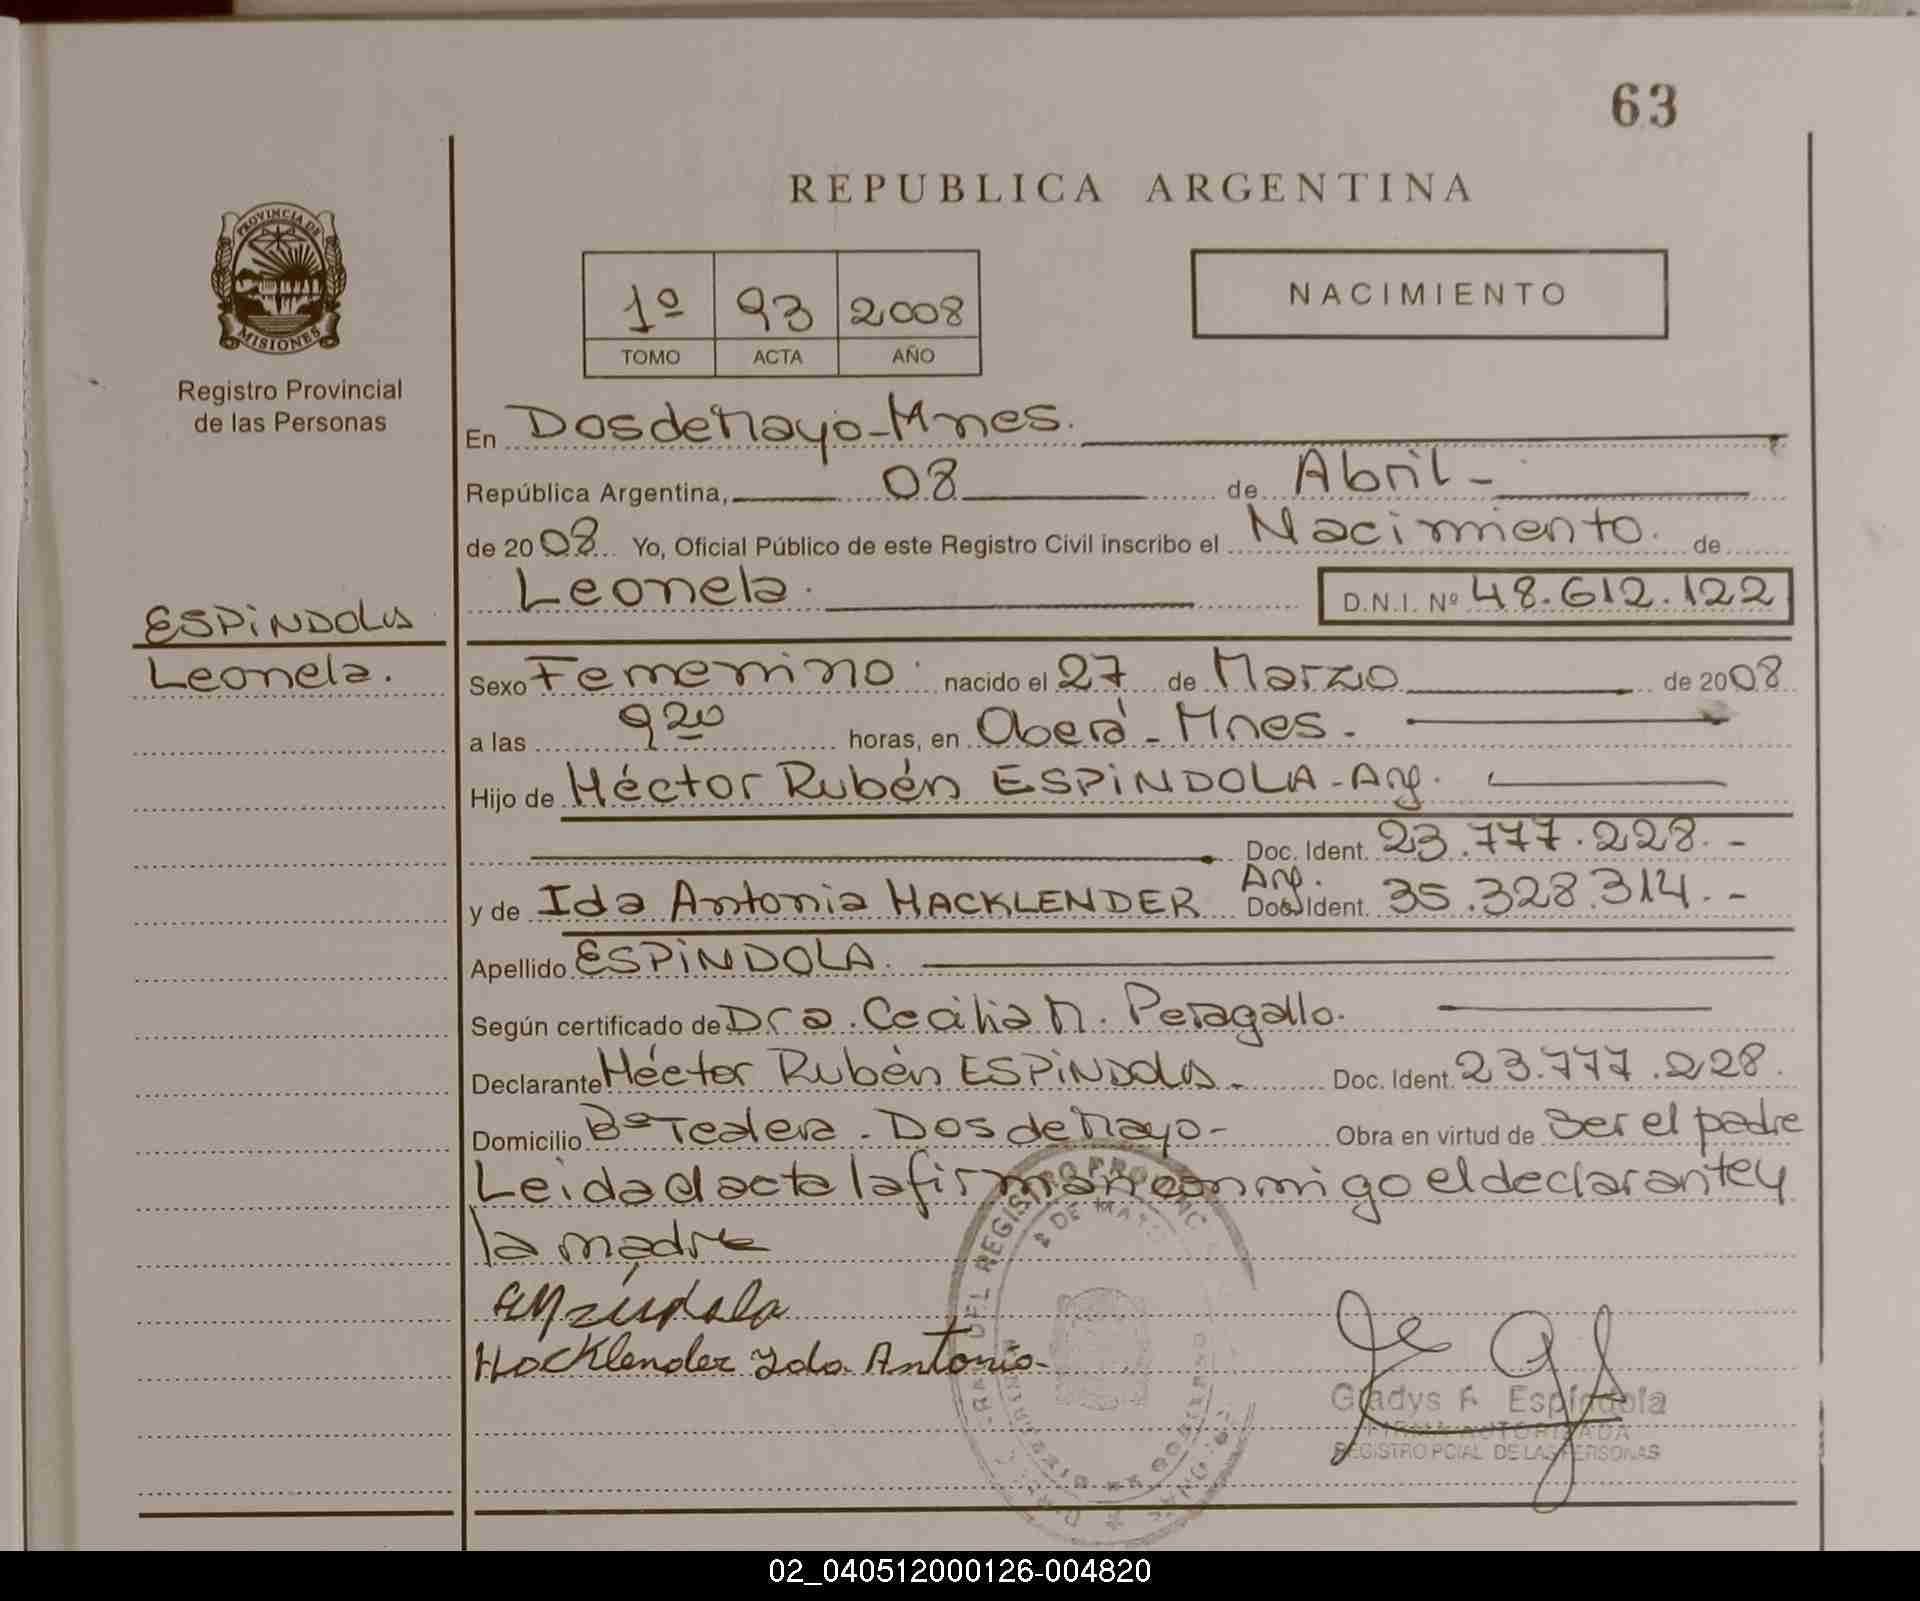 63
REPUBLICA ARGENTINA
PROVINCIA DE
MISIONES
Registro Provincial
de las Personas
1º 93 2008
TOMO ACTA AÑO
NACIMIENTO
En Dos de Mayo - Mnes.
República Argentina, 08 de Abril -
de 2008 Yo, Oficial Público de este Registro Civil inscribo el Nacimiento. de
Leonela. D.N.I. Nº 48.612.122
ESPINDOLA
Leonela.
Sexo Femenino. nacido el 27 de Marzo de 2008
a las 9 20 horas, en Oberá - Mnes.
Hijo de Héctor Rubén ESPINDOLA - Arg.
Doc. Ident. 23.777.228. -
y de Ida Antonia HACKLENDER Arg. Doc. Ident. 35.328.314. -
Apellido ESPINDOLA.
Según certificado de Dra. Cecilia M. Peragallo.
Declarante Héctor Rubén ESPINDOLA - Doc. Ident. 23.777.228.
Domicilio Bº Tealera - Dos de Mayo - Obra en virtud de Ser el padre
Leida el acta la firman conmigo el declarante y
la madre
Hacklender Ida Antonia-
Gladys F. Espíndola
FIRMA AUTORIZADA
REGISTRO PCIAL DE LAS PERSONAS
02_040512000126-004820